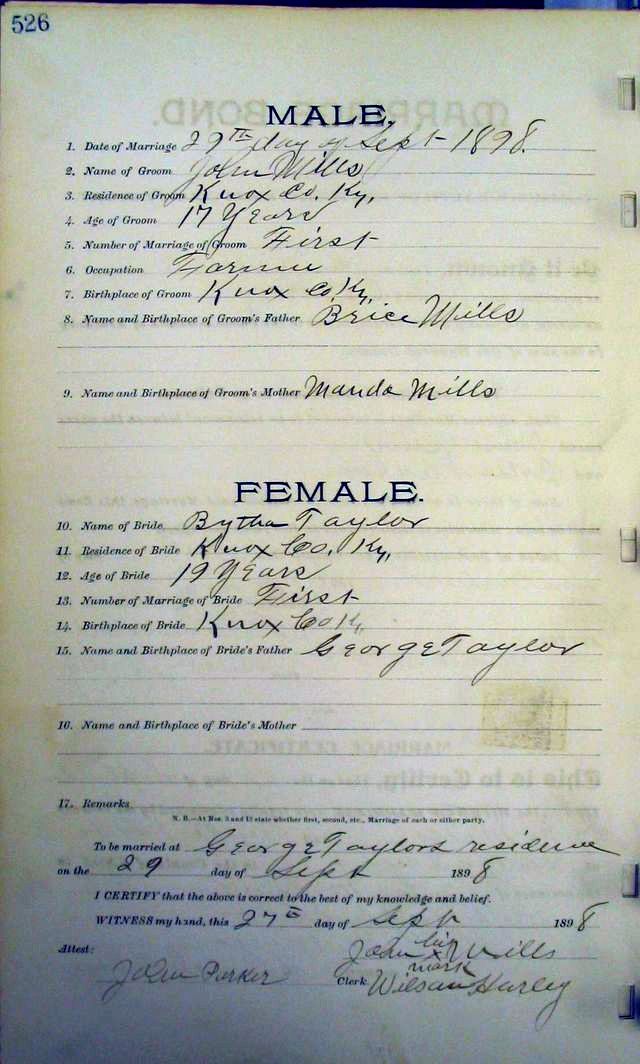 526
MALE.
1. Date of Marriage 29th day of Sept 1898.
2. Name of Groom John Mills
3. Residence of Groom Knox Co. Ky,
4. Age of Groom 17 Years
5. Number of Marriage of Groom First
6. Occupation Farmer
7. Birthplace of Groom Knox Co, Ky,
8. Name and Birthplace of Groom's Father Brice Mills
9. Name and Birthplace of Groom's Mother Manda Mills
FEMALE.
10. Name of Bride Bytha Taylor
11. Residence of Bride Knox Co, Ky,
12. Age of Bride 19 Years
13. Number of Marriage of Bride First
14. Birthplace of Bride Knox Co Ky,
15. Name and Birthplace of Bride's Father George Taylor
16. Name and Birthplace of Bride's Mother
17. Remarks
N. B.—At Nos. 5 and 13 state whether first, second, etc., Marriage of each or either party.
To be married at George Taylors residence
on the 29 day of Sept 1898
I CERTIFY that the above is correct to the best of my knowledge and belief.
WITNESS my hand, this 27th day of Sept 1898
Attest: John his x mark Mills
John Parker Clerk Wilson Hurley